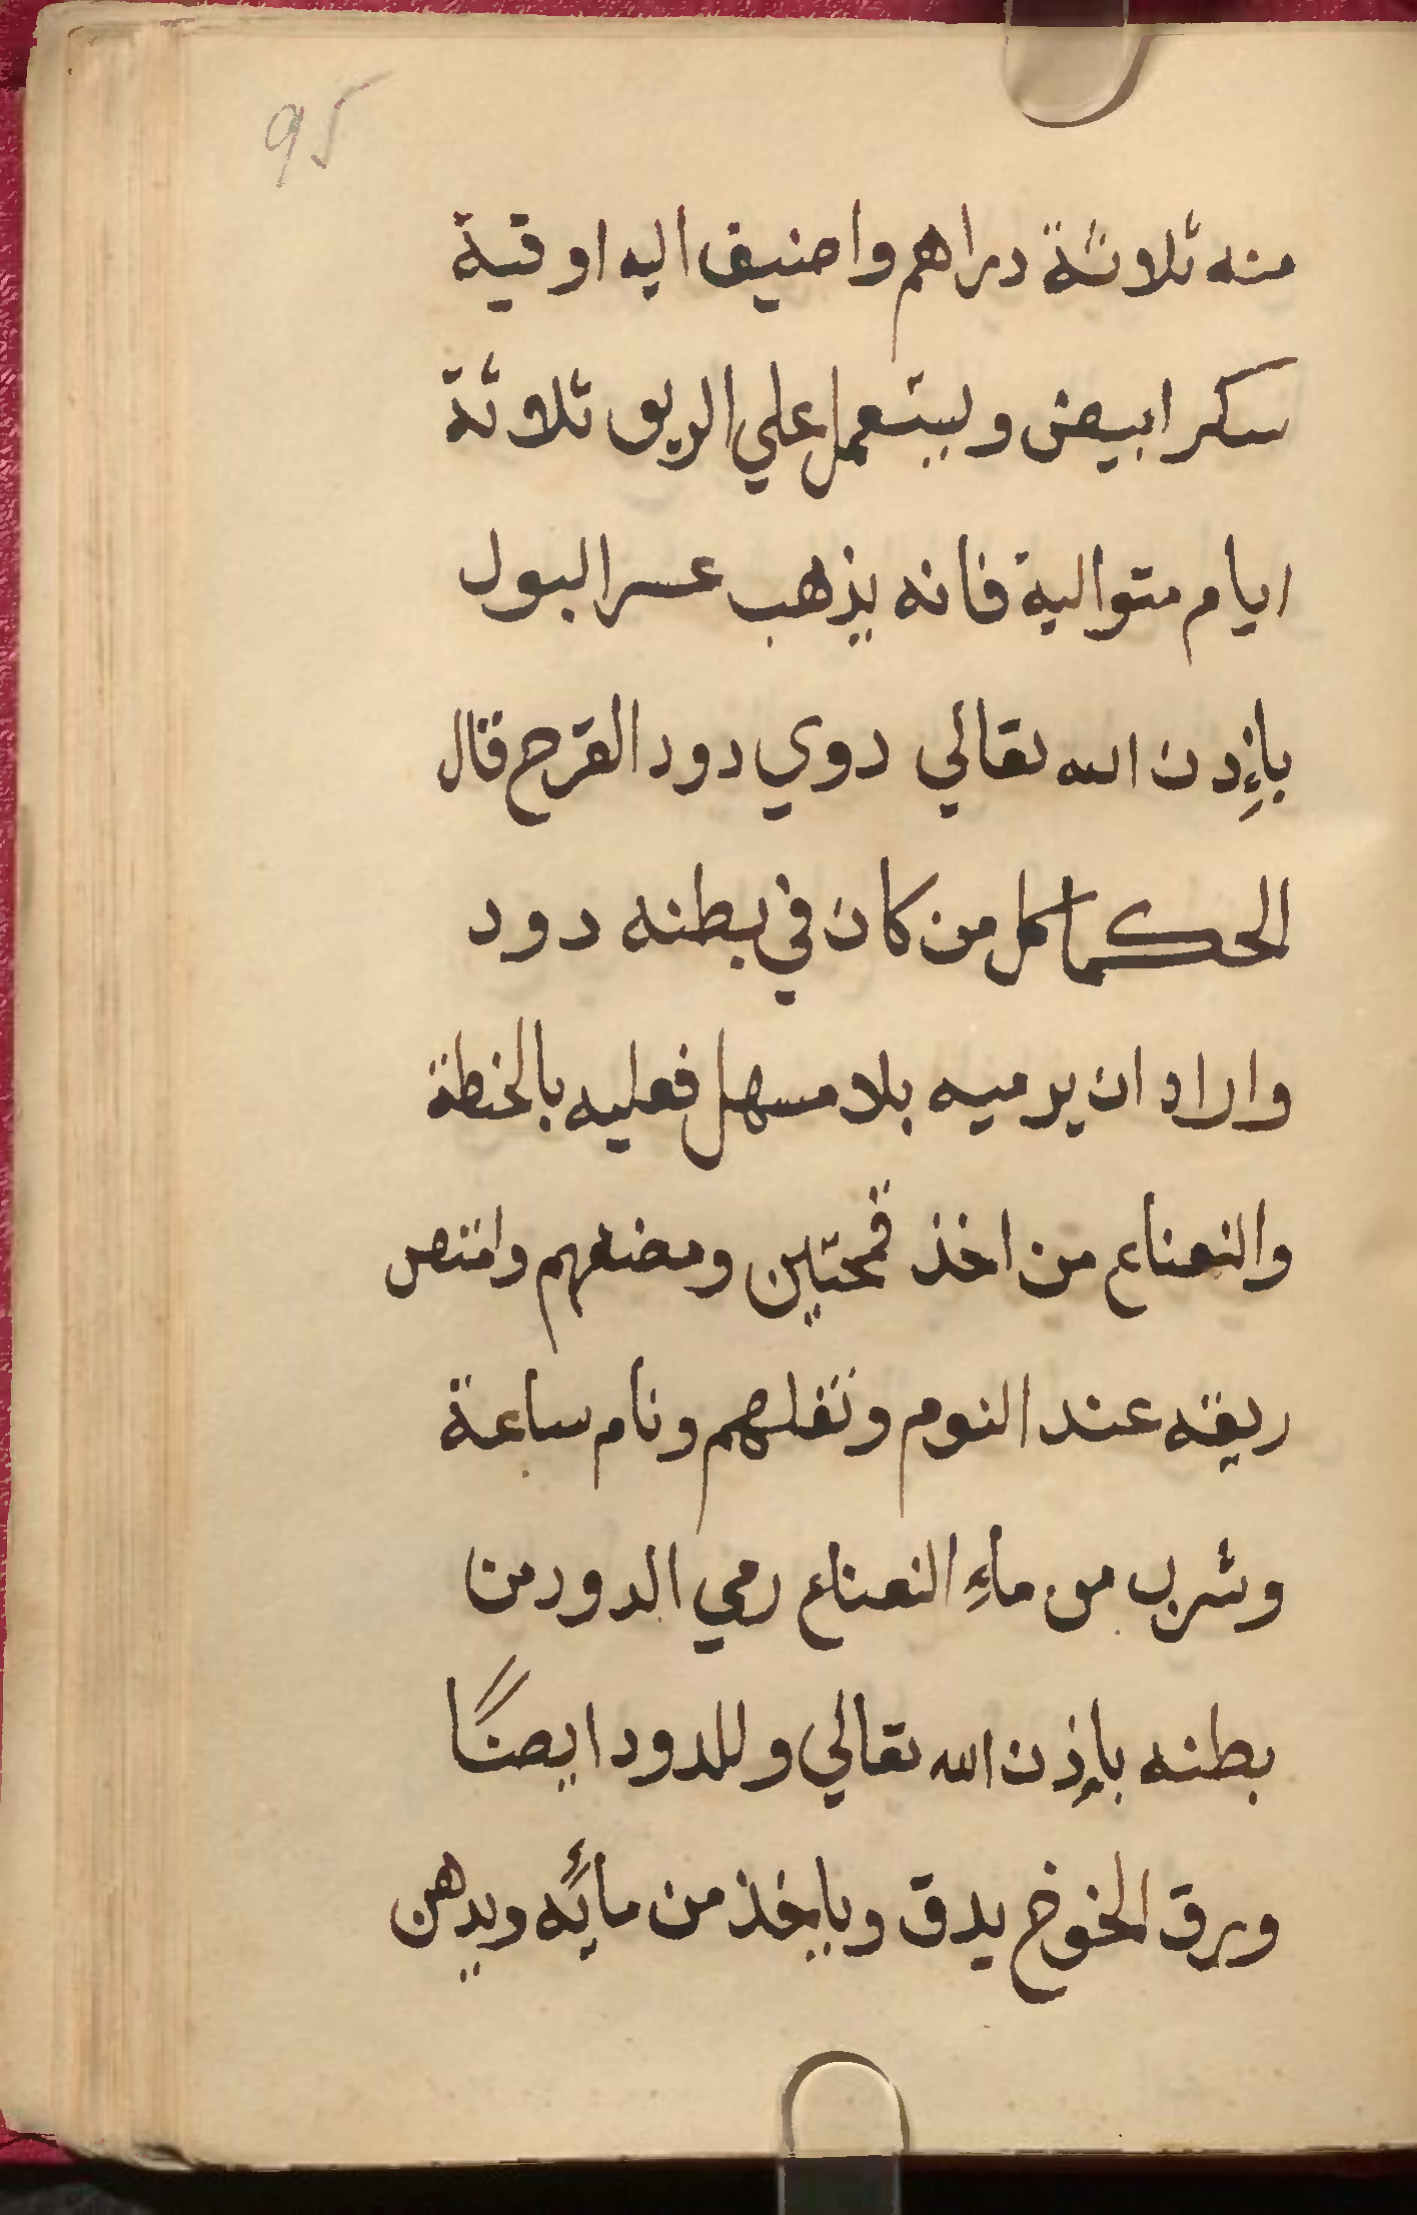 95
منه ثلاثة دراهم واضيف اليه اوقية
سكر ابيض ويستعمل علي الريق ثلاثة
ايام متوالية فانه يذهب عسر البول
بإذن الله تعالي دوي دود القرح قال
الحكما كل من كان في بطنه دود
واراد ان يرميه بلا مسهل فعليه بالحنطة
والنعناع من اخذ قمحتين ومضغهم وامتص
ريقه عند النوم وتفلهم ونام ساعة
وشرب من ماءِ النعناع رمي الدود من
بطنه بإذن الله تعالي وللدود ايضًا
ورق الخوخ يدق وياخذ من مائه ويدهن